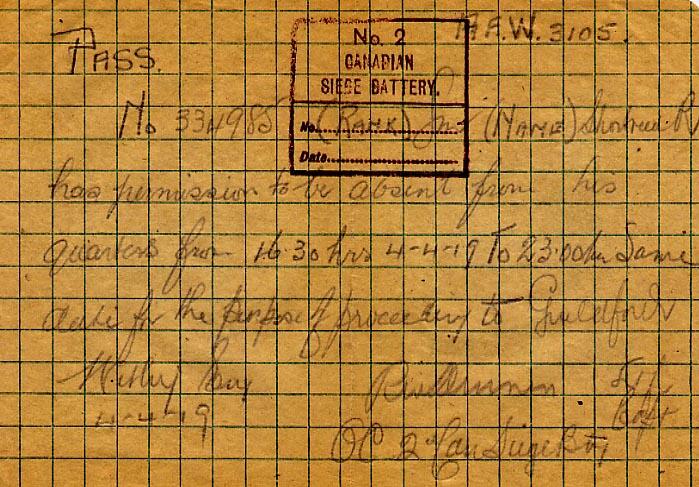 PASS.
A.F.W. 3105.
No. 2
CANADIAN
SIEGE BATTERY.
No
Date
No 334985 (RANK) Gnr (NAME)
has permission to be absent from his
quarters from 16.30 hrs 4-4-19 To 23.00 hrs Same
date for the purpose of proceeding to Guildford
Witley Camp
4-4-19
Capt
OC 2 Can Siege Bty